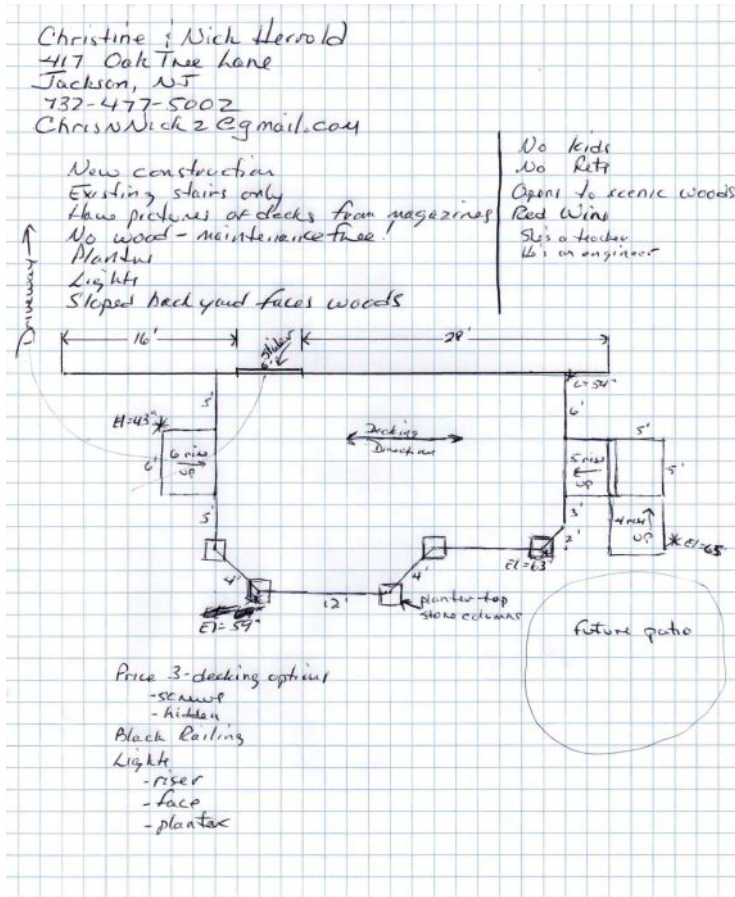 Christine & Nick Hervold
417 Oak Tree Lane
Jackson, NJ
732-477-5002
ChrisNNick2@gmail.com
New construction
Existing stairs only
Have pictures of decks from magazines
No wood - maintenance free!
Planters
Lights
Sloped back yard faces woods
No Kids
No Pets
Opens to scenic woods
Red Wine
She's a teacher
He's an engineer
Driveway
16'
6' slider
28'
El=54"
5'
6'
El=43"
6'
6 rise
UP
Decking
Direction
5'
5 rise
UP
5'
5'
3'
2'
4 rise
UP
El=65"
El=63"
4'
4'
12'
El=59"
planter-top
stone columns
future patio
Price 3-decking options
-screws
-hidden
Black Railing
Lights
-riser
-face
-planter